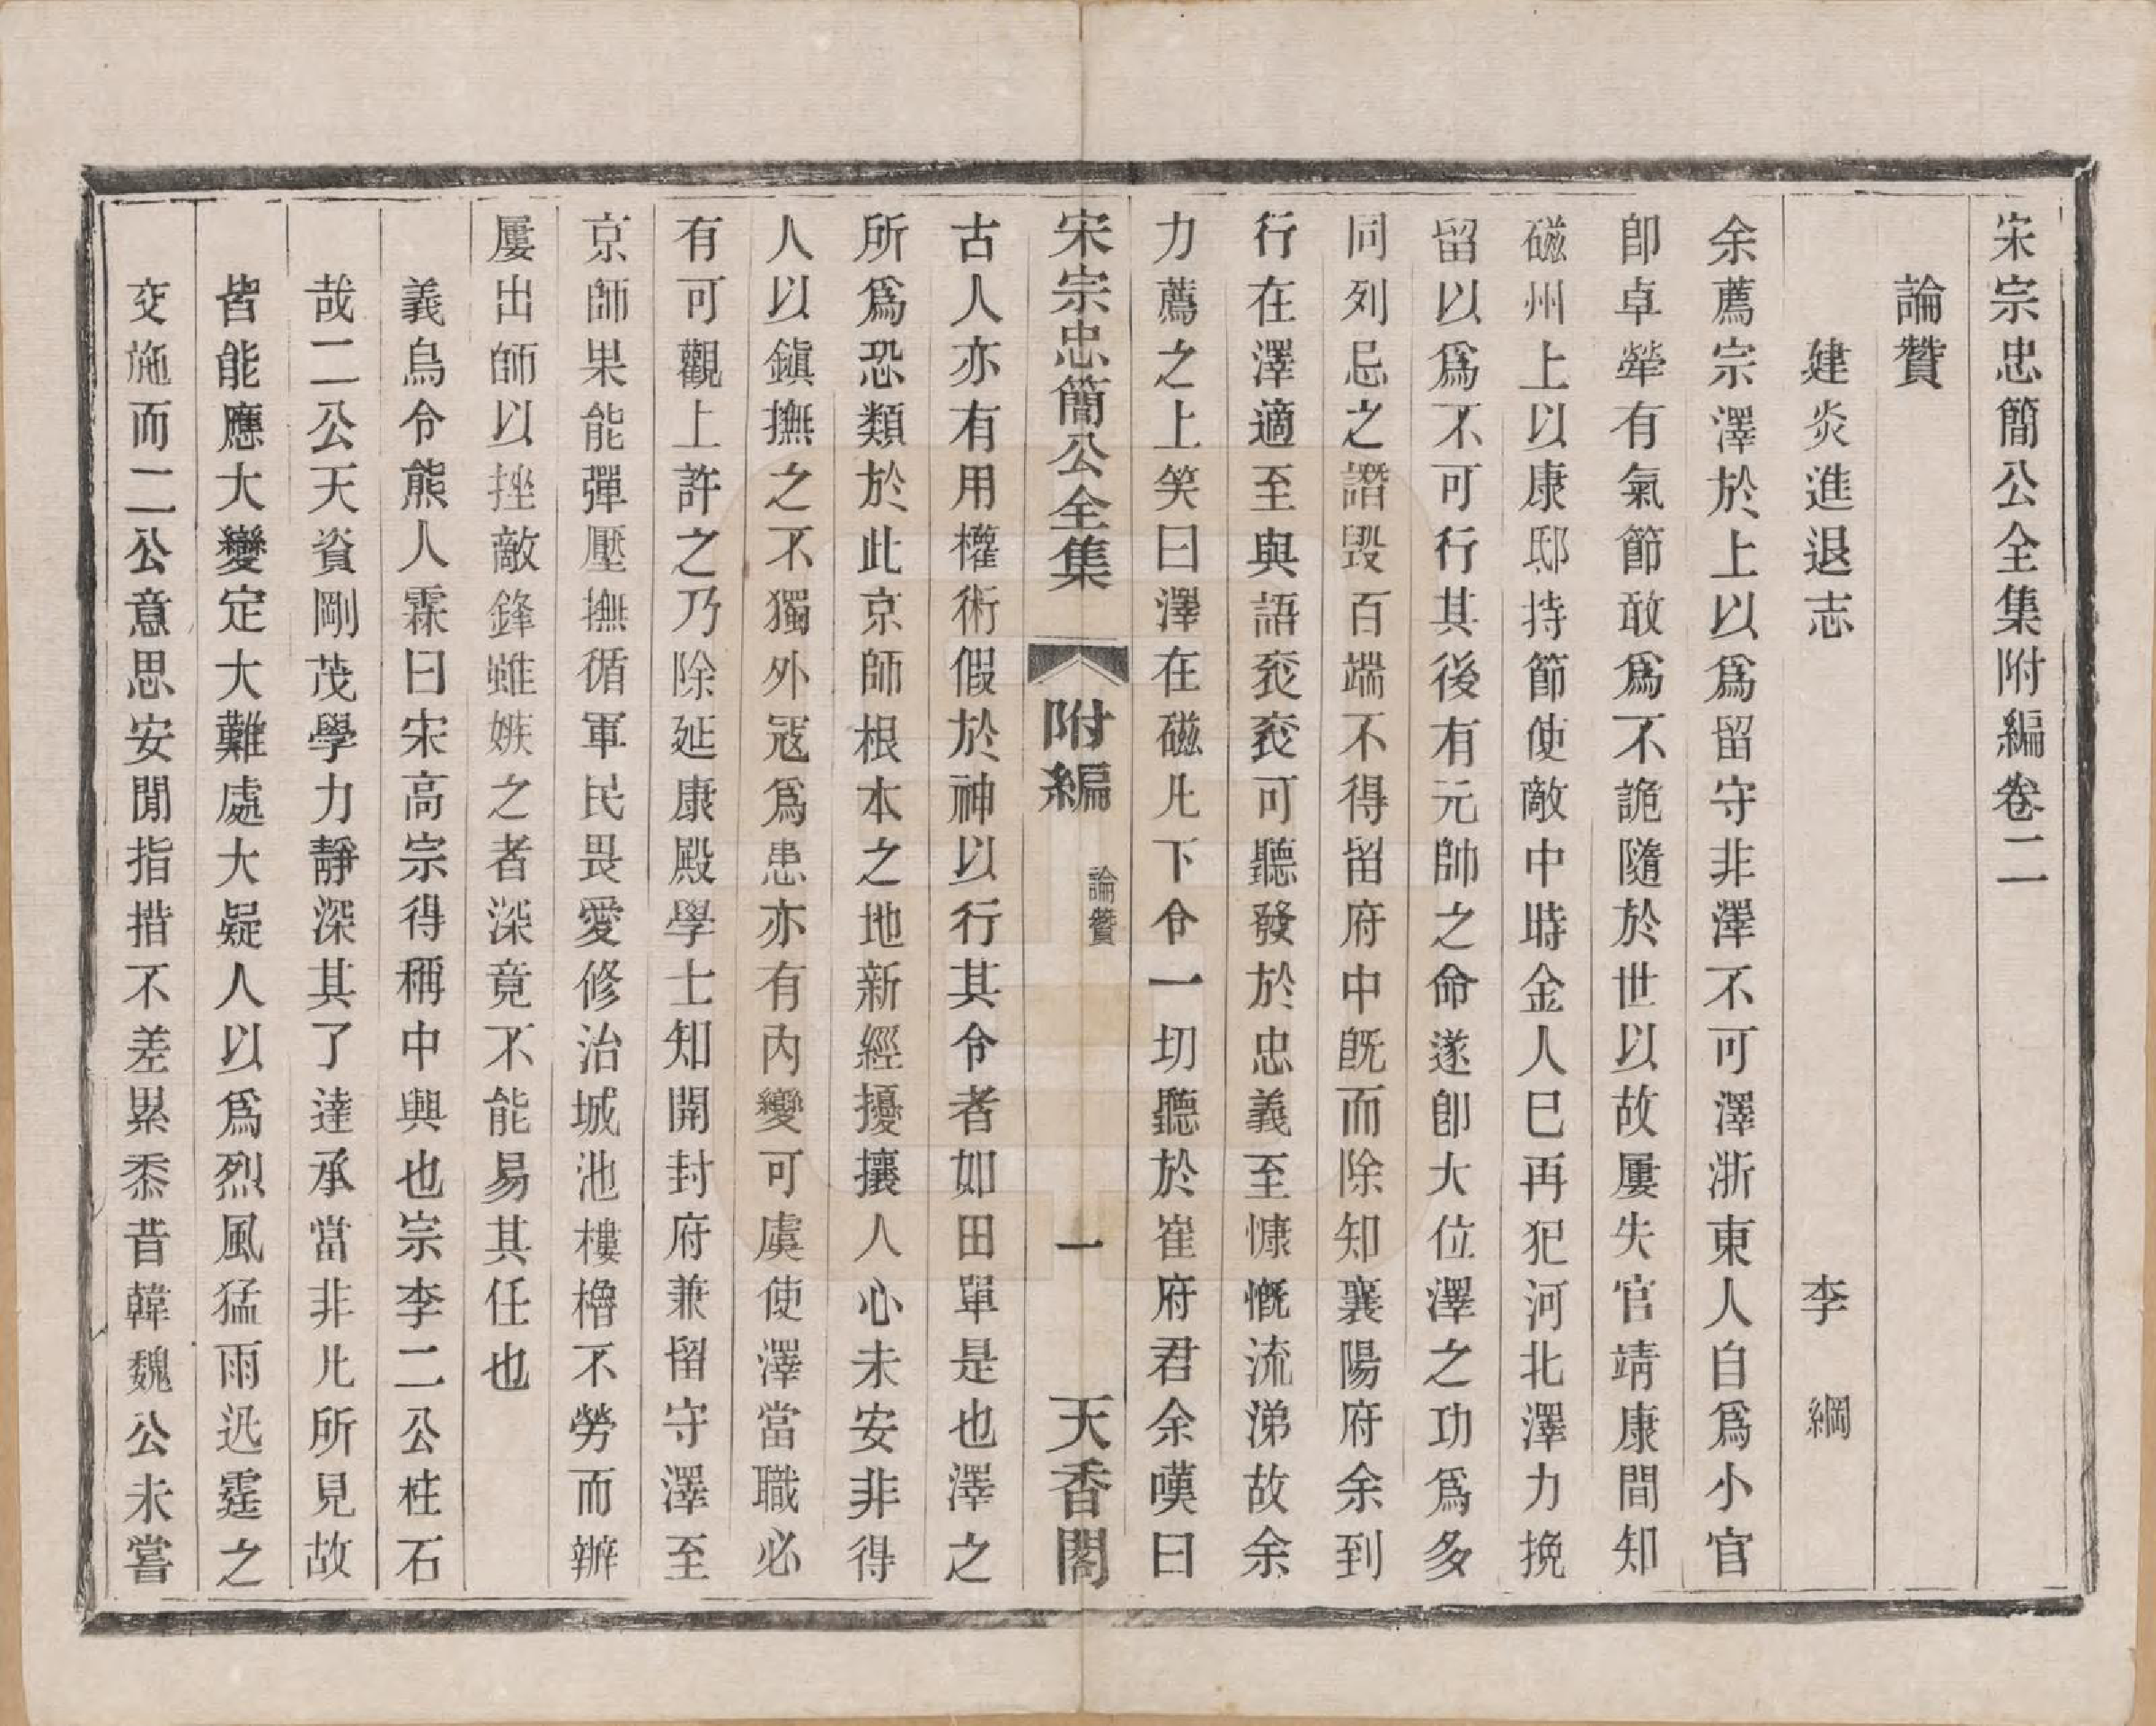 宋宗忠簡公全集附編卷二
論贊
建炎進退志　李　綱
余薦宗澤於上以爲留守非澤不可澤浙東人自爲小官
卽卓犖有氣節敢爲不詭隨於世以故屢失官靖康間知
磁州上以康邸持節使敵中時金人巳再犯河北澤力挽
留以爲不可行其後有元帥之命遂卽大位澤之功爲多
同列忌之譖毀百端不得留府中旣而除知襄陽府余到
行在澤適至與語衮衮可聽發於忠義至慷慨流涕故余
力薦之上笑曰澤在磁凡下令一切聽於崔府君余嘆曰
宋宗忠簡公全集　附編　論贊　一　天香閣
古人亦有用權術假於神以行其令者如田單是也澤之
所爲恐類於此京師根本之地新經擾攘人心未安非得
人以鎭撫之不獨外寇爲患亦有內變可虞使澤當職必
有可觀上許之乃除延康殿學士知開封府兼留守澤至
京師果能彈壓撫循軍民畏愛修治城池樓櫓不勞而辦
屢出師以挫敵鋒雖嫉之者深竟不能易其任也
義烏令熊人霖曰宋高宗得稱中興也宗李二公柱石
哉二公天資剛茂學力靜深其了達承當非凡所見故
皆能應大變定大難處大疑人以爲烈風猛雨迅霆之
交施而二公意思安閒指揩不差累黍昔韓魏公未嘗